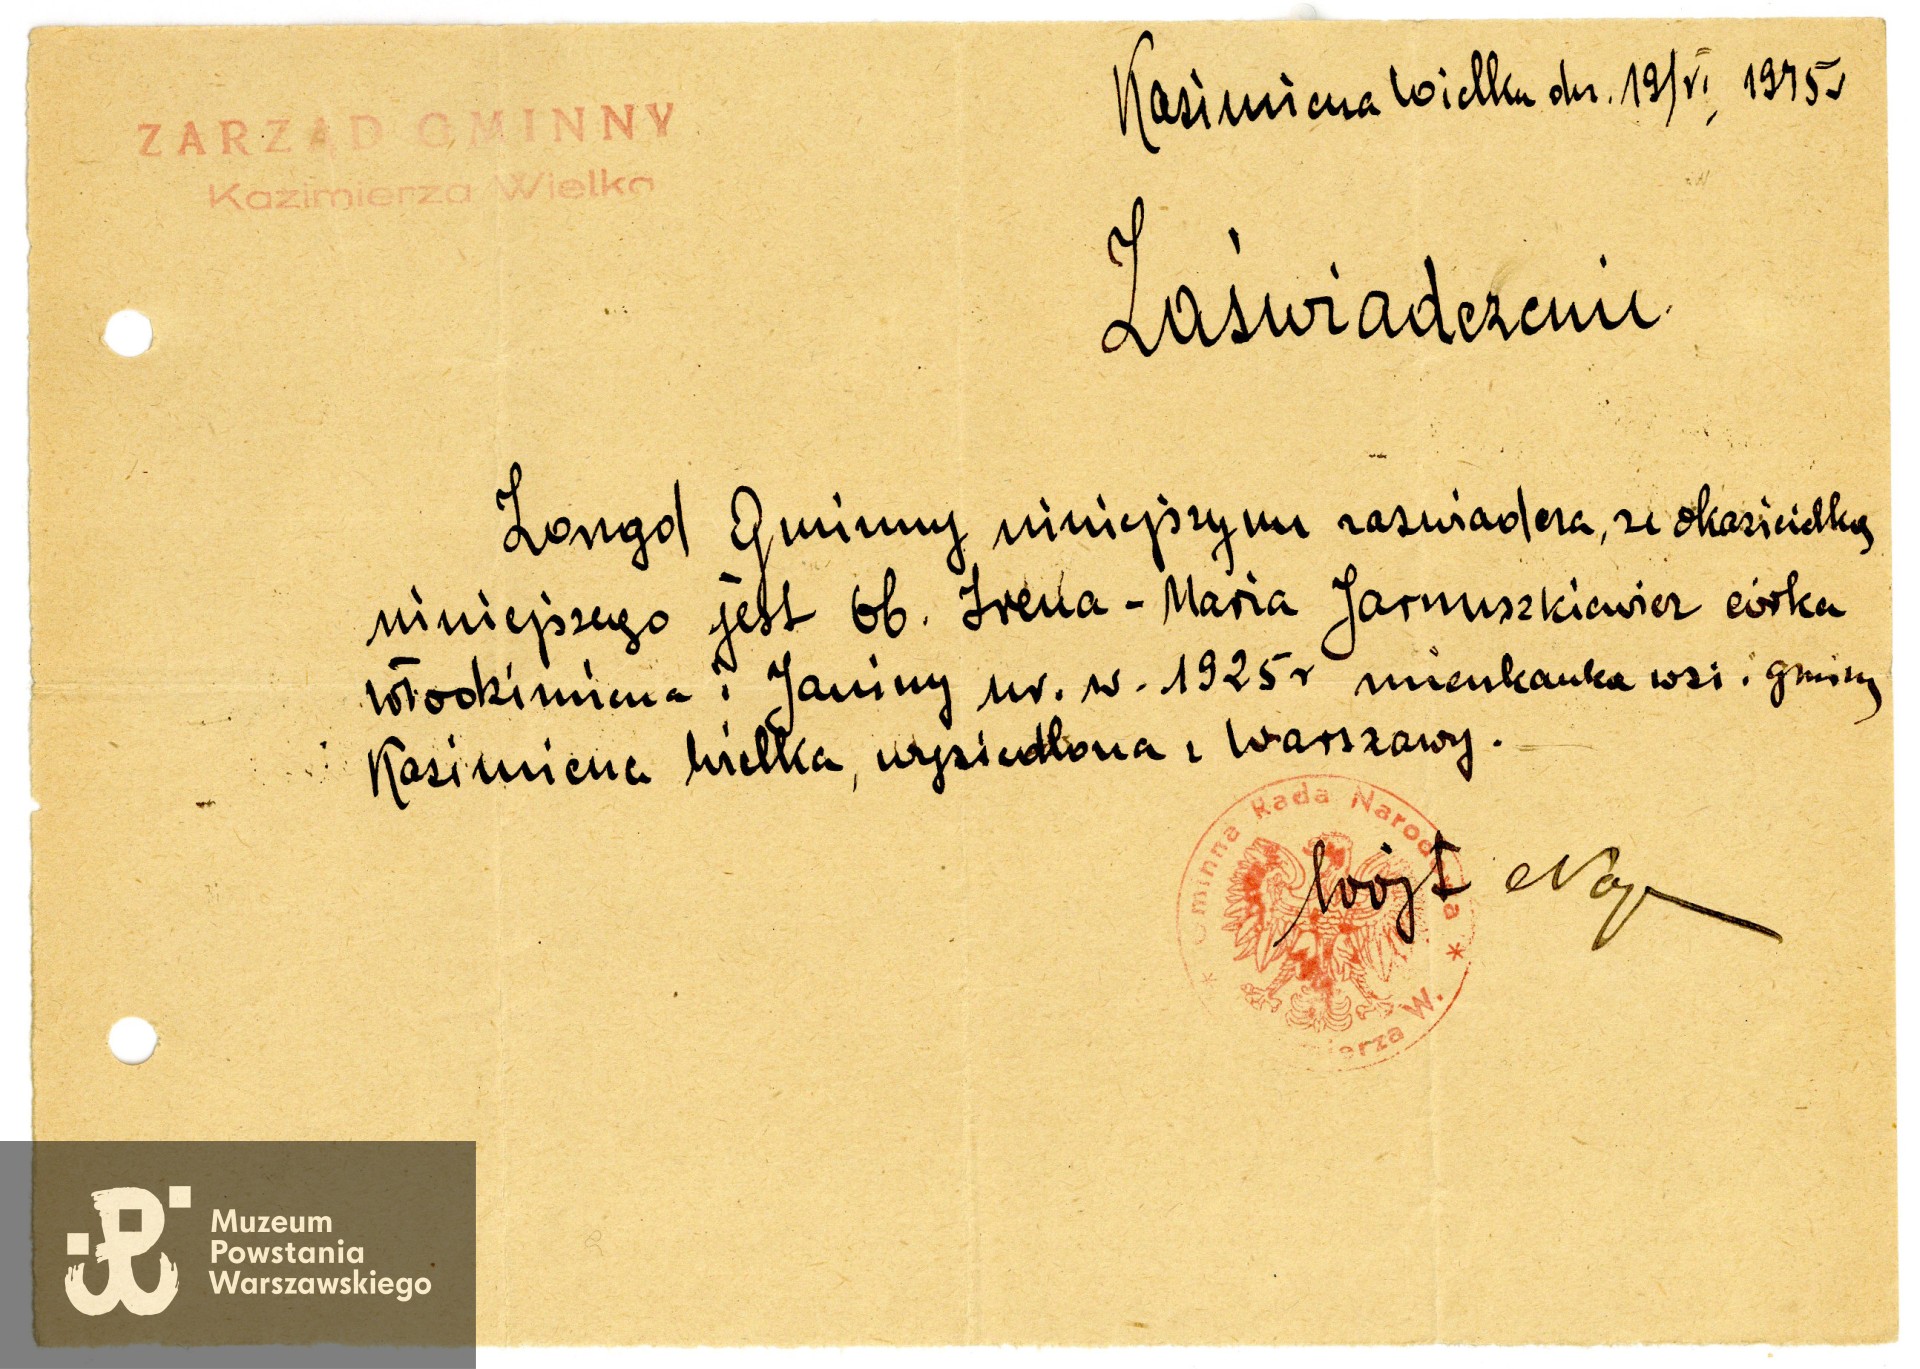 ZARZĄD GMINNY
Kazimierza Wielka
Kazimierza Wielka dn. 19/VI 1945r
Zaświadczenie
Zarząd Gminny niniejszym zaświadcza, że okazicielką
niniejszego jest ob. Irena - Maria Jarnuszkiewicz córka
Włodzimierza i Janiny ur. w. 1925r mieszkanka wsi i gminy
Kazimierza Wielka, wysiedlona z Warszawy.
Wójt
* Gminna Rada Narodowa *
mierza W.
Muzeum
Powstania
Warszawskiego